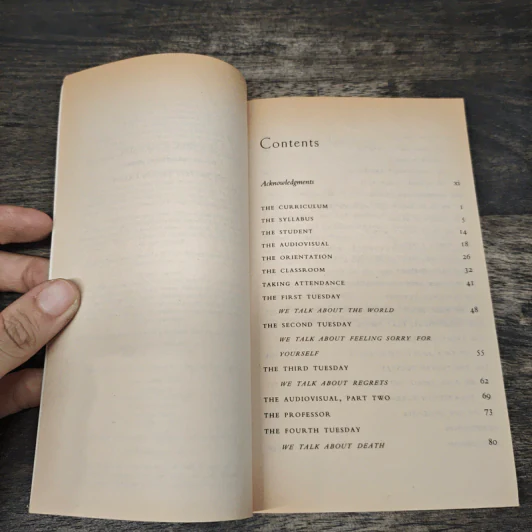 Contents
Acknowledgments xi
THE CURRICULUM 1
THE SYLLABUS 5
THE STUDENT 14
THE AUDIOVISUAL 18
THE ORIENTATION 26
THE CLASSROOM 32
TAKING ATTENDANCE 41
THE FIRST TUESDAY
WE TALK ABOUT THE WORLD 48
THE SECOND TUESDAY
WE TALK ABOUT FEELING SORRY FOR
YOURSELF 55
THE THIRD TUESDAY
WE TALK ABOUT REGRETS 62
THE AUDIOVISUAL, PART TWO 69
THE PROFESSOR 73
THE FOURTH TUESDAY
WE TALK ABOUT DEATH 80